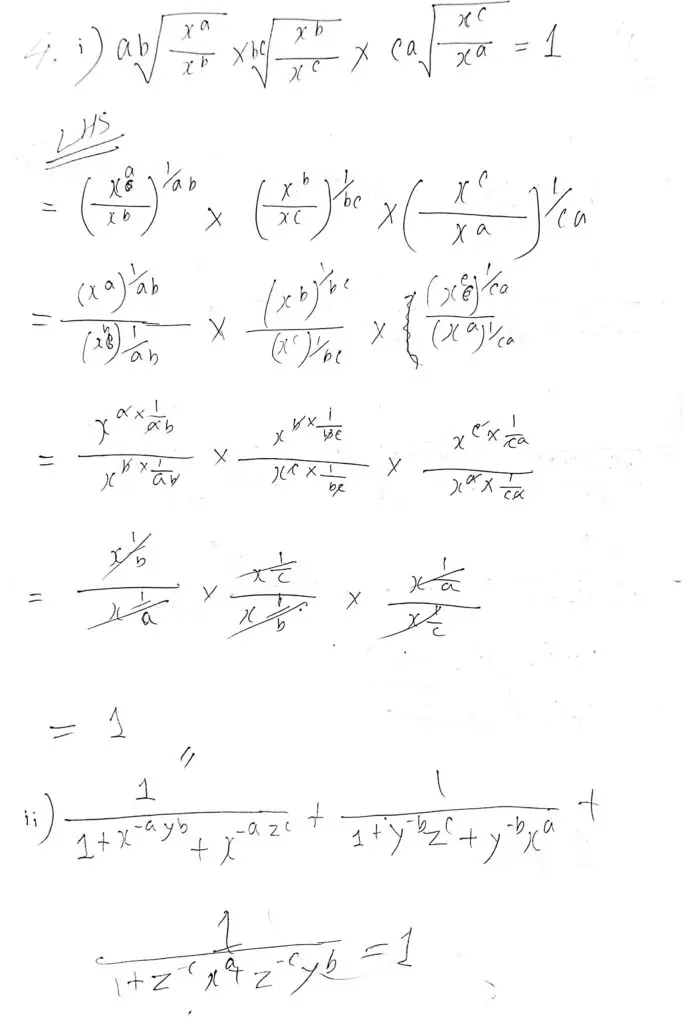 4. i) ab√(x^a/x^b) × bc√(x^b/x^c) × ca√(x^c/x^a) = 1
LHS
= (x^a/x^b)^1/ab × (x^b/x^c)^1/bc × (x^c/x^a)^1/ca
= (x^a)^1/ab/(x^b)^1/ab × (x^b)^1/bc/(x^c)^1/bc × (x^c)^1/ca/(x^a)^1/ca
= x^(a×1/ab)/x^(b×1/ab) × x^(b×1/bc)/x^(c×1/bc) × x^(c×1/ca)/x^(a×1/ca)
= x^1/b/x^1/a × x^1/c/x^1/b × x^1/a/x^1/c
= 1
ii) 1/(1+x^-a y^b + x^-a z^c) + 1/(1+y^-b z^c + y^-b x^a) +
1/(1+z^-c x^a + z^-c y^b) = 1